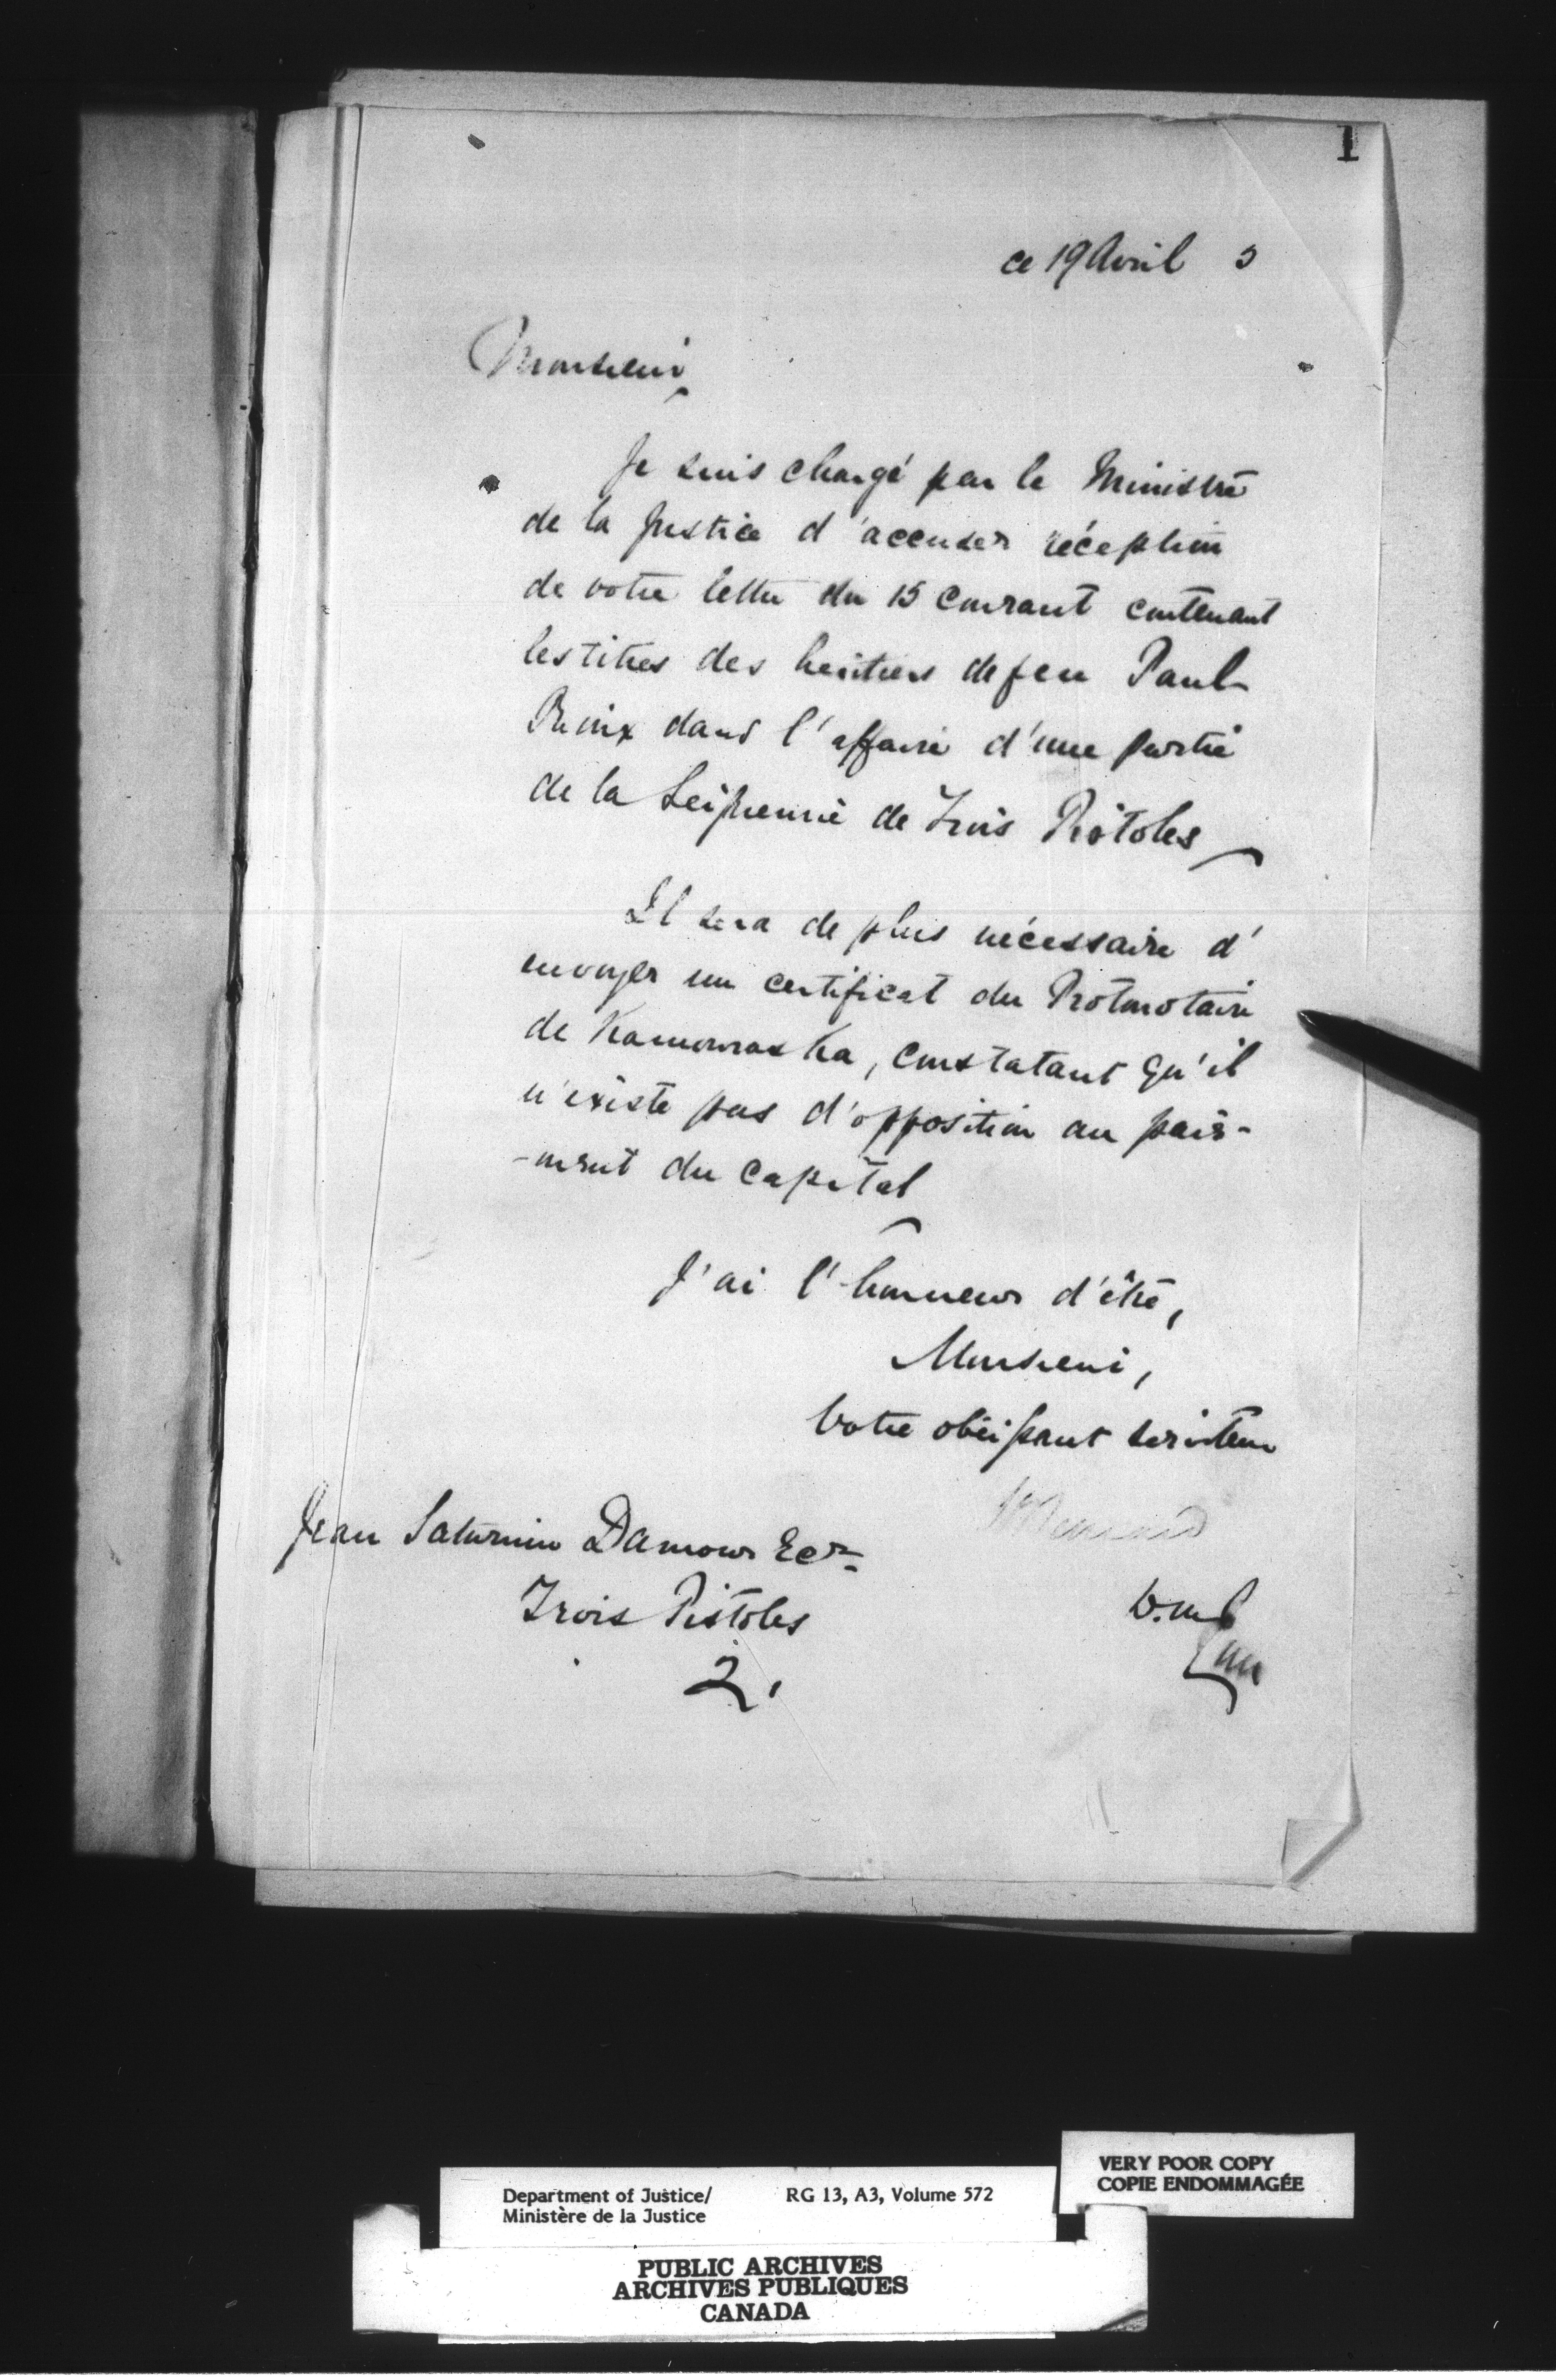 1
ce 19 Avril 3
Monsieur
Je suis chargé par le Ministre
de la Justice d'accuser réception
de votre lettre du 15 courant contenant
les titres des heritiers de feu Paul
dans l'affaire d'une partie
de la Seigneurie de Trois Pistoles
Il sera de plus nécessaire d'
envoyer un certificat du Protonotaire
de Kamouraska, constatant qu'il
n'existe pas d'opposition au paie-
-ment du Capital
J'ai l'honneur d'être,
Monsieur,
Votre obéissant serviteur
Jean Saturnin Damour Ecr
Trois Pistoles
2.
Department of Justice/ RG 13, A3, Volume 572
Ministère de la Justice
VERY POOR COPY
COPIE ENDOMMAGÉE
PUBLIC ARCHIVES
ARCHIVES PUBLIQUES
CANADA